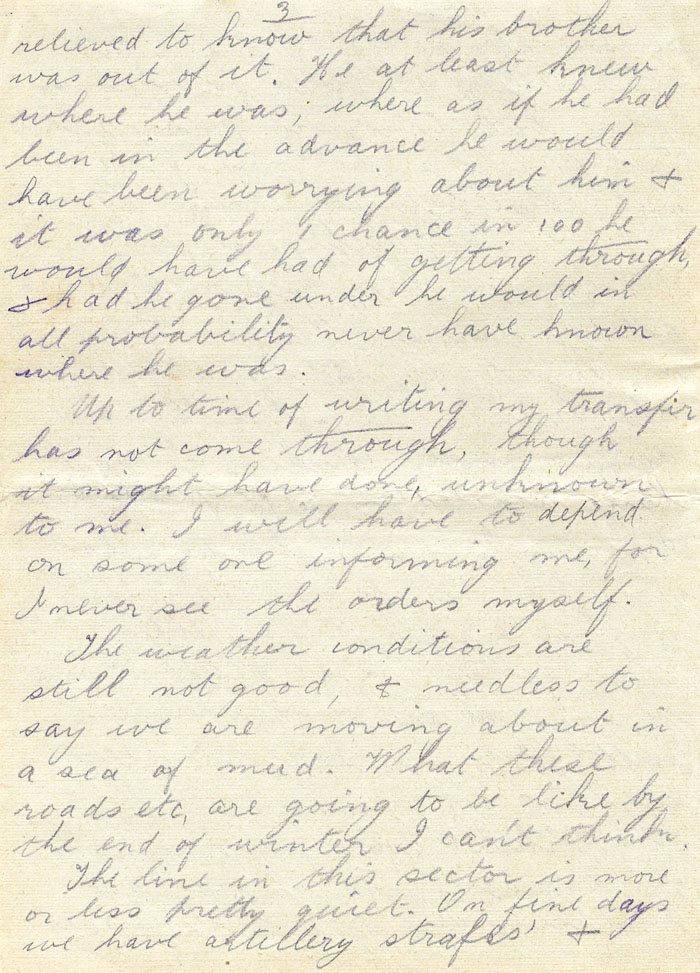 3
relieved to know that his brother
was out of it. He at least knew
where he was; where as if he had
been in the advance he would
have been worrying about him &
it was only 1 chance in 100 he
would have had of getting through,
& had he gone under he would in
all probability never have known
where he was.
Up to time of writing my transfer
has not come through, though
it might have done, unknown
to me. I will have to depend
on some one informing me, for
I never see the orders myself.
The weather conditions are
still not good, & needless to
say we are moving about in
a sea of mud. What these
roads etc, are going to be like by
the end of winter I can't think.
The line in this sector is more
or less pretty quiet. On fine days
we have artillery strafes' &